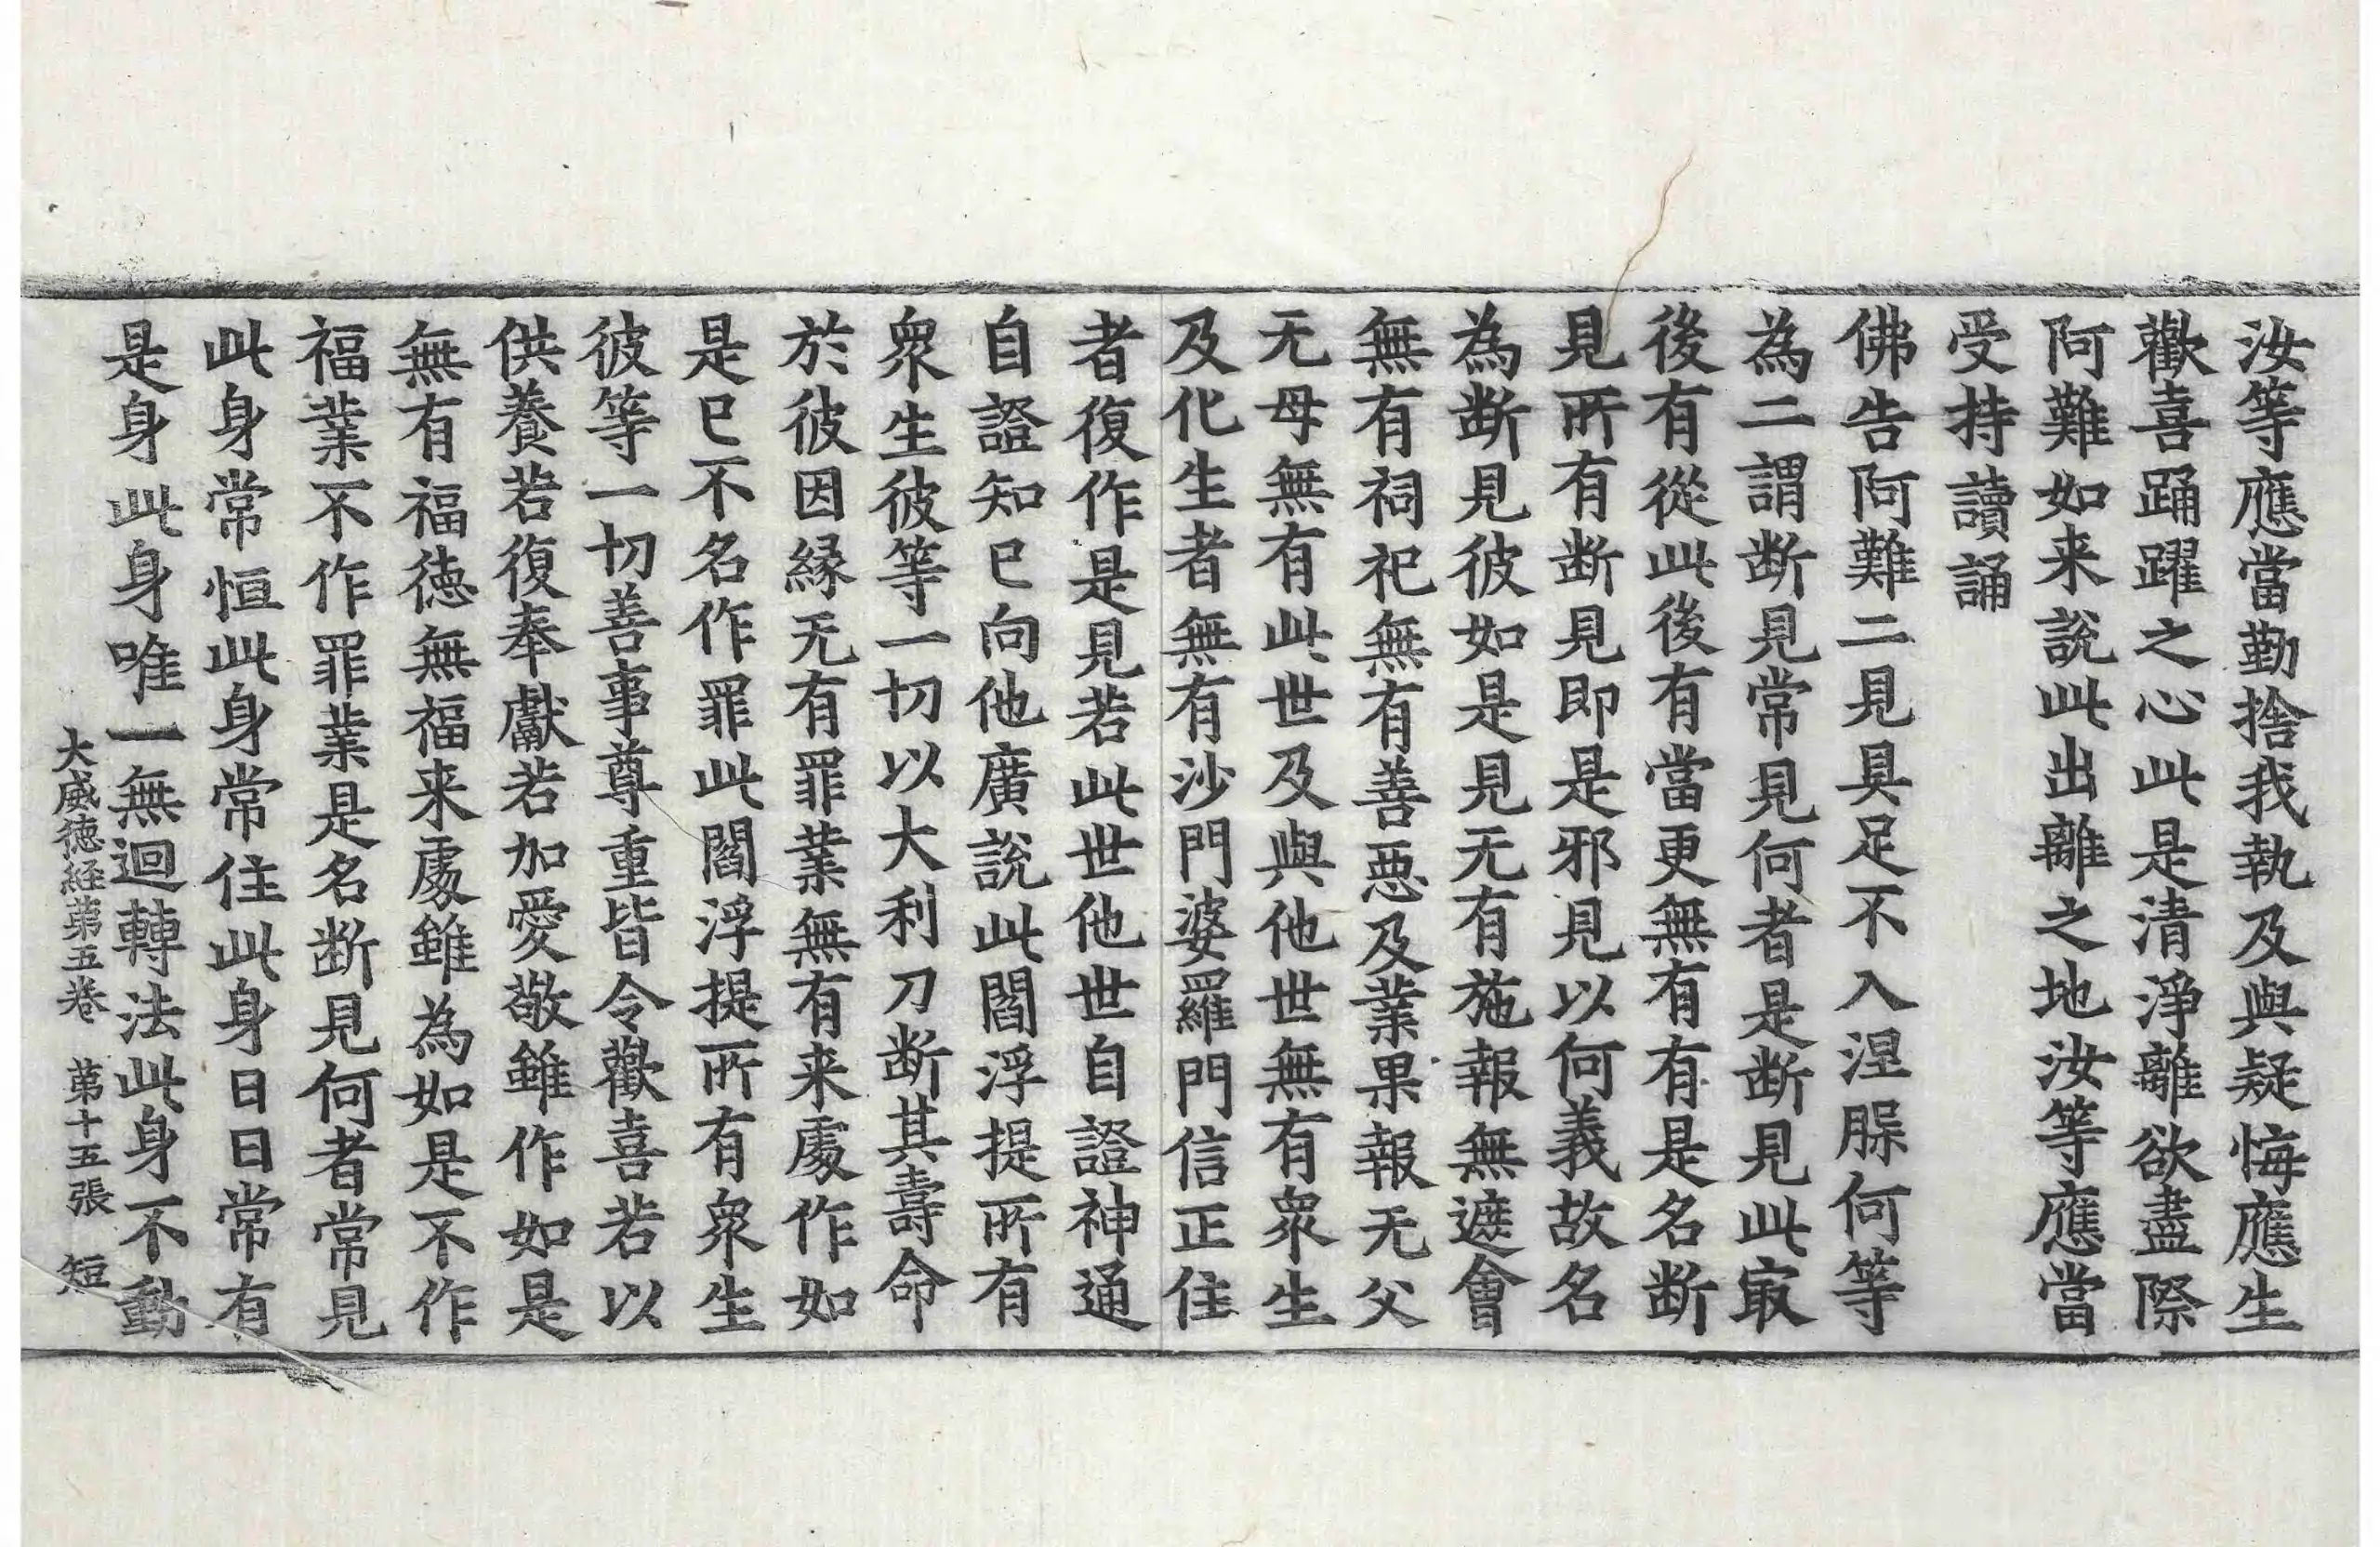 汝等應當勤捨我執及與疑悔應生
歡喜踊躍之心此是清淨離欲盡際
阿難如来說此出離之地汝等應當
受持讀誦
佛告阿難二見具足不入涅脲何等
為二謂断見常見何者是断見此㝡
後有從此後有當更無有有是名断
見所有断見即是邪見以何義故名
為断見彼如是見无有施報無遮會
無有祠祀無有善惡及業果報无父
无母無有此世及與他世無有衆生
及化生者無有沙門婆羅門信正住
者復作是見若此世他世自證神通
自證知已向他廣說此閻浮提所有
衆生彼等一切以大利刀断其壽命
於彼因縁无有罪業無有来處作如
是已不名作罪此閻浮提所有衆生
彼等一切善事尊重皆令歡喜若以
供養若復奉獻若加愛敬雖作如是
無有福徳無福来處雖為如是不作
福業不作罪業是名断見何者常見
此身常恒此身常住此身日日常有
是身此身唯一無迴轉法此身不動
大威徳経第五卷 第十五張 短